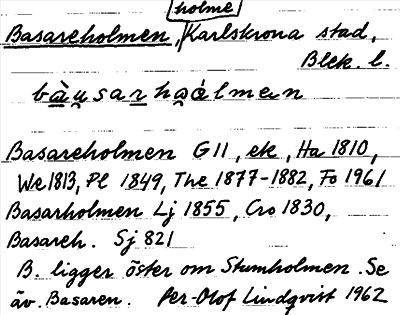 holme
Basareholmen, Karlskrona stad,
Blek. l.
bàu̯sarho̯álmen
Basareholmen G11, ek, Ha 1810,
We 1813, Pl 1849, The 1877-1882, Fo 1961
Basarholmen Lj 1855, Cro 1830,
Basareh. Sj 821
B. ligger öster om Stumholmen. Se
äv. Basaren. Per-Olof Lindqvist 1962